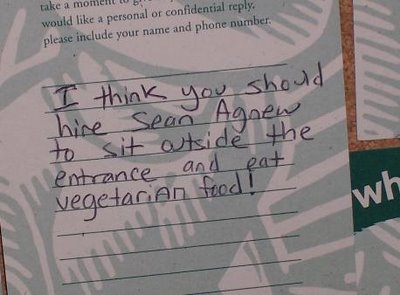 take a moment to
would like a personal or confidential reply,
please include your name and phone number.
I think you should
hire Sean Agnew
to sit outside the
entrance and eat
vegetariAn food!
wh